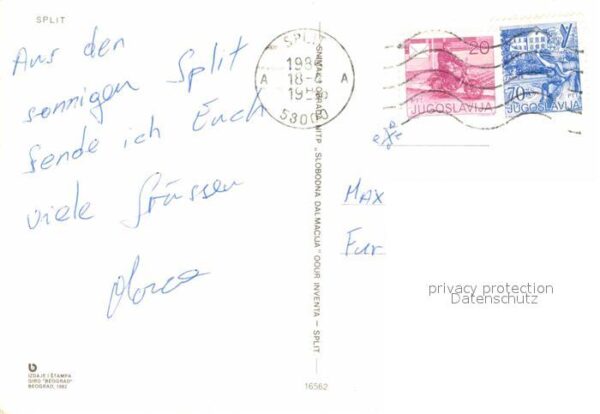 SPLIT
Aus den
sonnigen Split
sende ich Euch
viele Grüssen
SPLIT
198
A 18- A
19
58000
20
JUGOSLAVIJA
70
JUGOSLAVIJA
SNIMAK I OBRADA NITP „SLOBODNA DALMACIJA" OOUR INVENTA — SPLIT —
Max
Fur
privacy protection
Datenschutz
IZDAJE I ŠTAMPA
GIRO "BEOGRAD"
BEOGRAD, 1982
16562